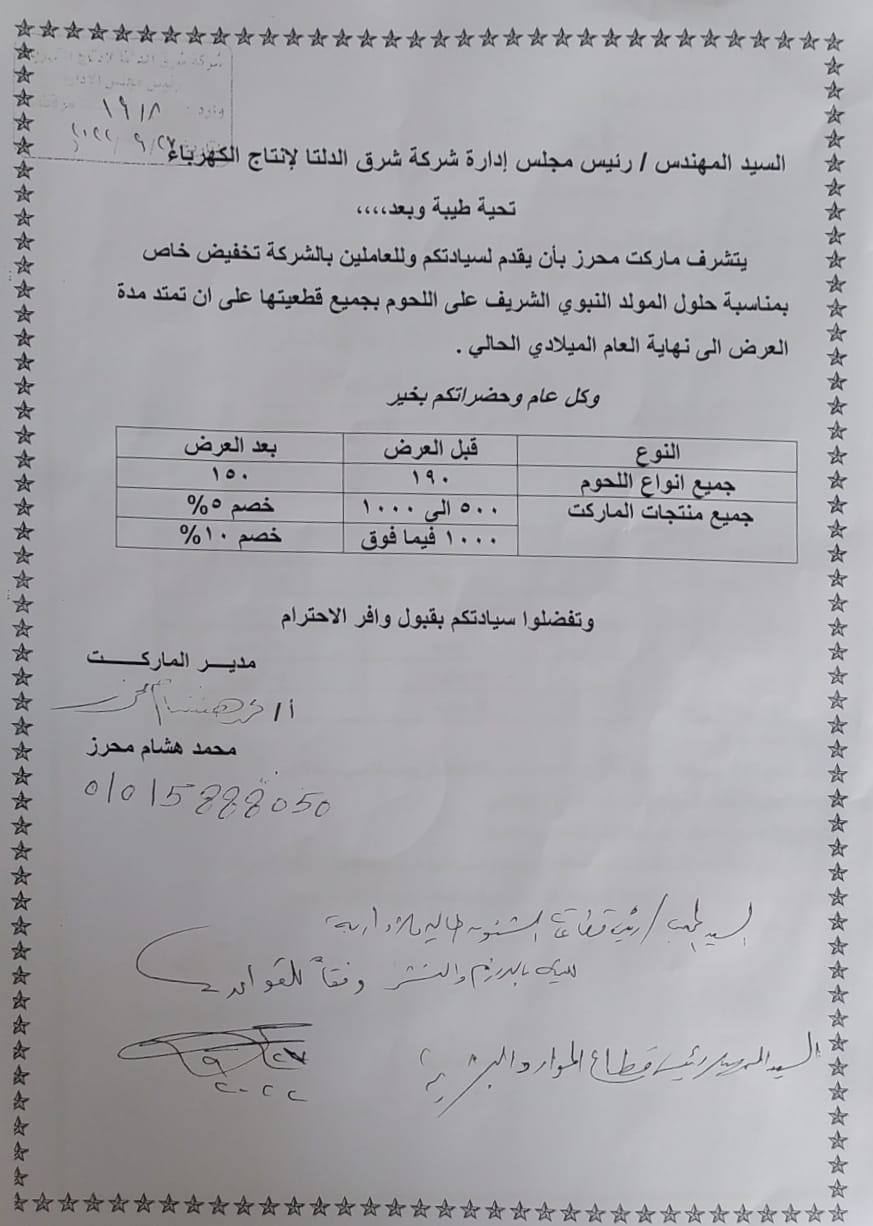 شركة شرق الدلتا لإنتاج الكهرباء
رئيس مجلس الادارة
١٩١٨
٢٠٢٢/٩/٢٧
السيد المهندس / رئيس مجلس إدارة شركة شرق الدلتا لإنتاج الكهرباء
تحية طيبة وبعد،،،،
يتشرف ماركت محرز بأن يقدم لسيادتكم وللعاملين بالشركة تخفيض خاص
بمناسبة حلول المولد النبوي الشريف على اللحوم بجميع قطعيتها على ان تمتد مدة
العرض الى نهاية العام الميلادي الحالي .
وكل عام وحضراتكم بخير
النوع قبل العرض بعد العرض
جميع انواع اللحوم ١٩٠ ١٥٠
جميع منتجات الماركت ٥٠٠ الى ١٠٠٠ خصم ٥%
١٠٠٠ فيما فوق خصم ١٠%
وتفضلوا سيادتكم بقبول وافر الاحترام
مديـــر الماركـــــت
أ / محمد هشام محرز
محمد هشام محرز
01015888050
السيد / رئيس قطاعات الشئون المالية والادارية
والنشر وفقاً للقواعد
السيد المهندس رئيس قطاع الموارد البشرية
٢٧
٩
٢٠٢٢